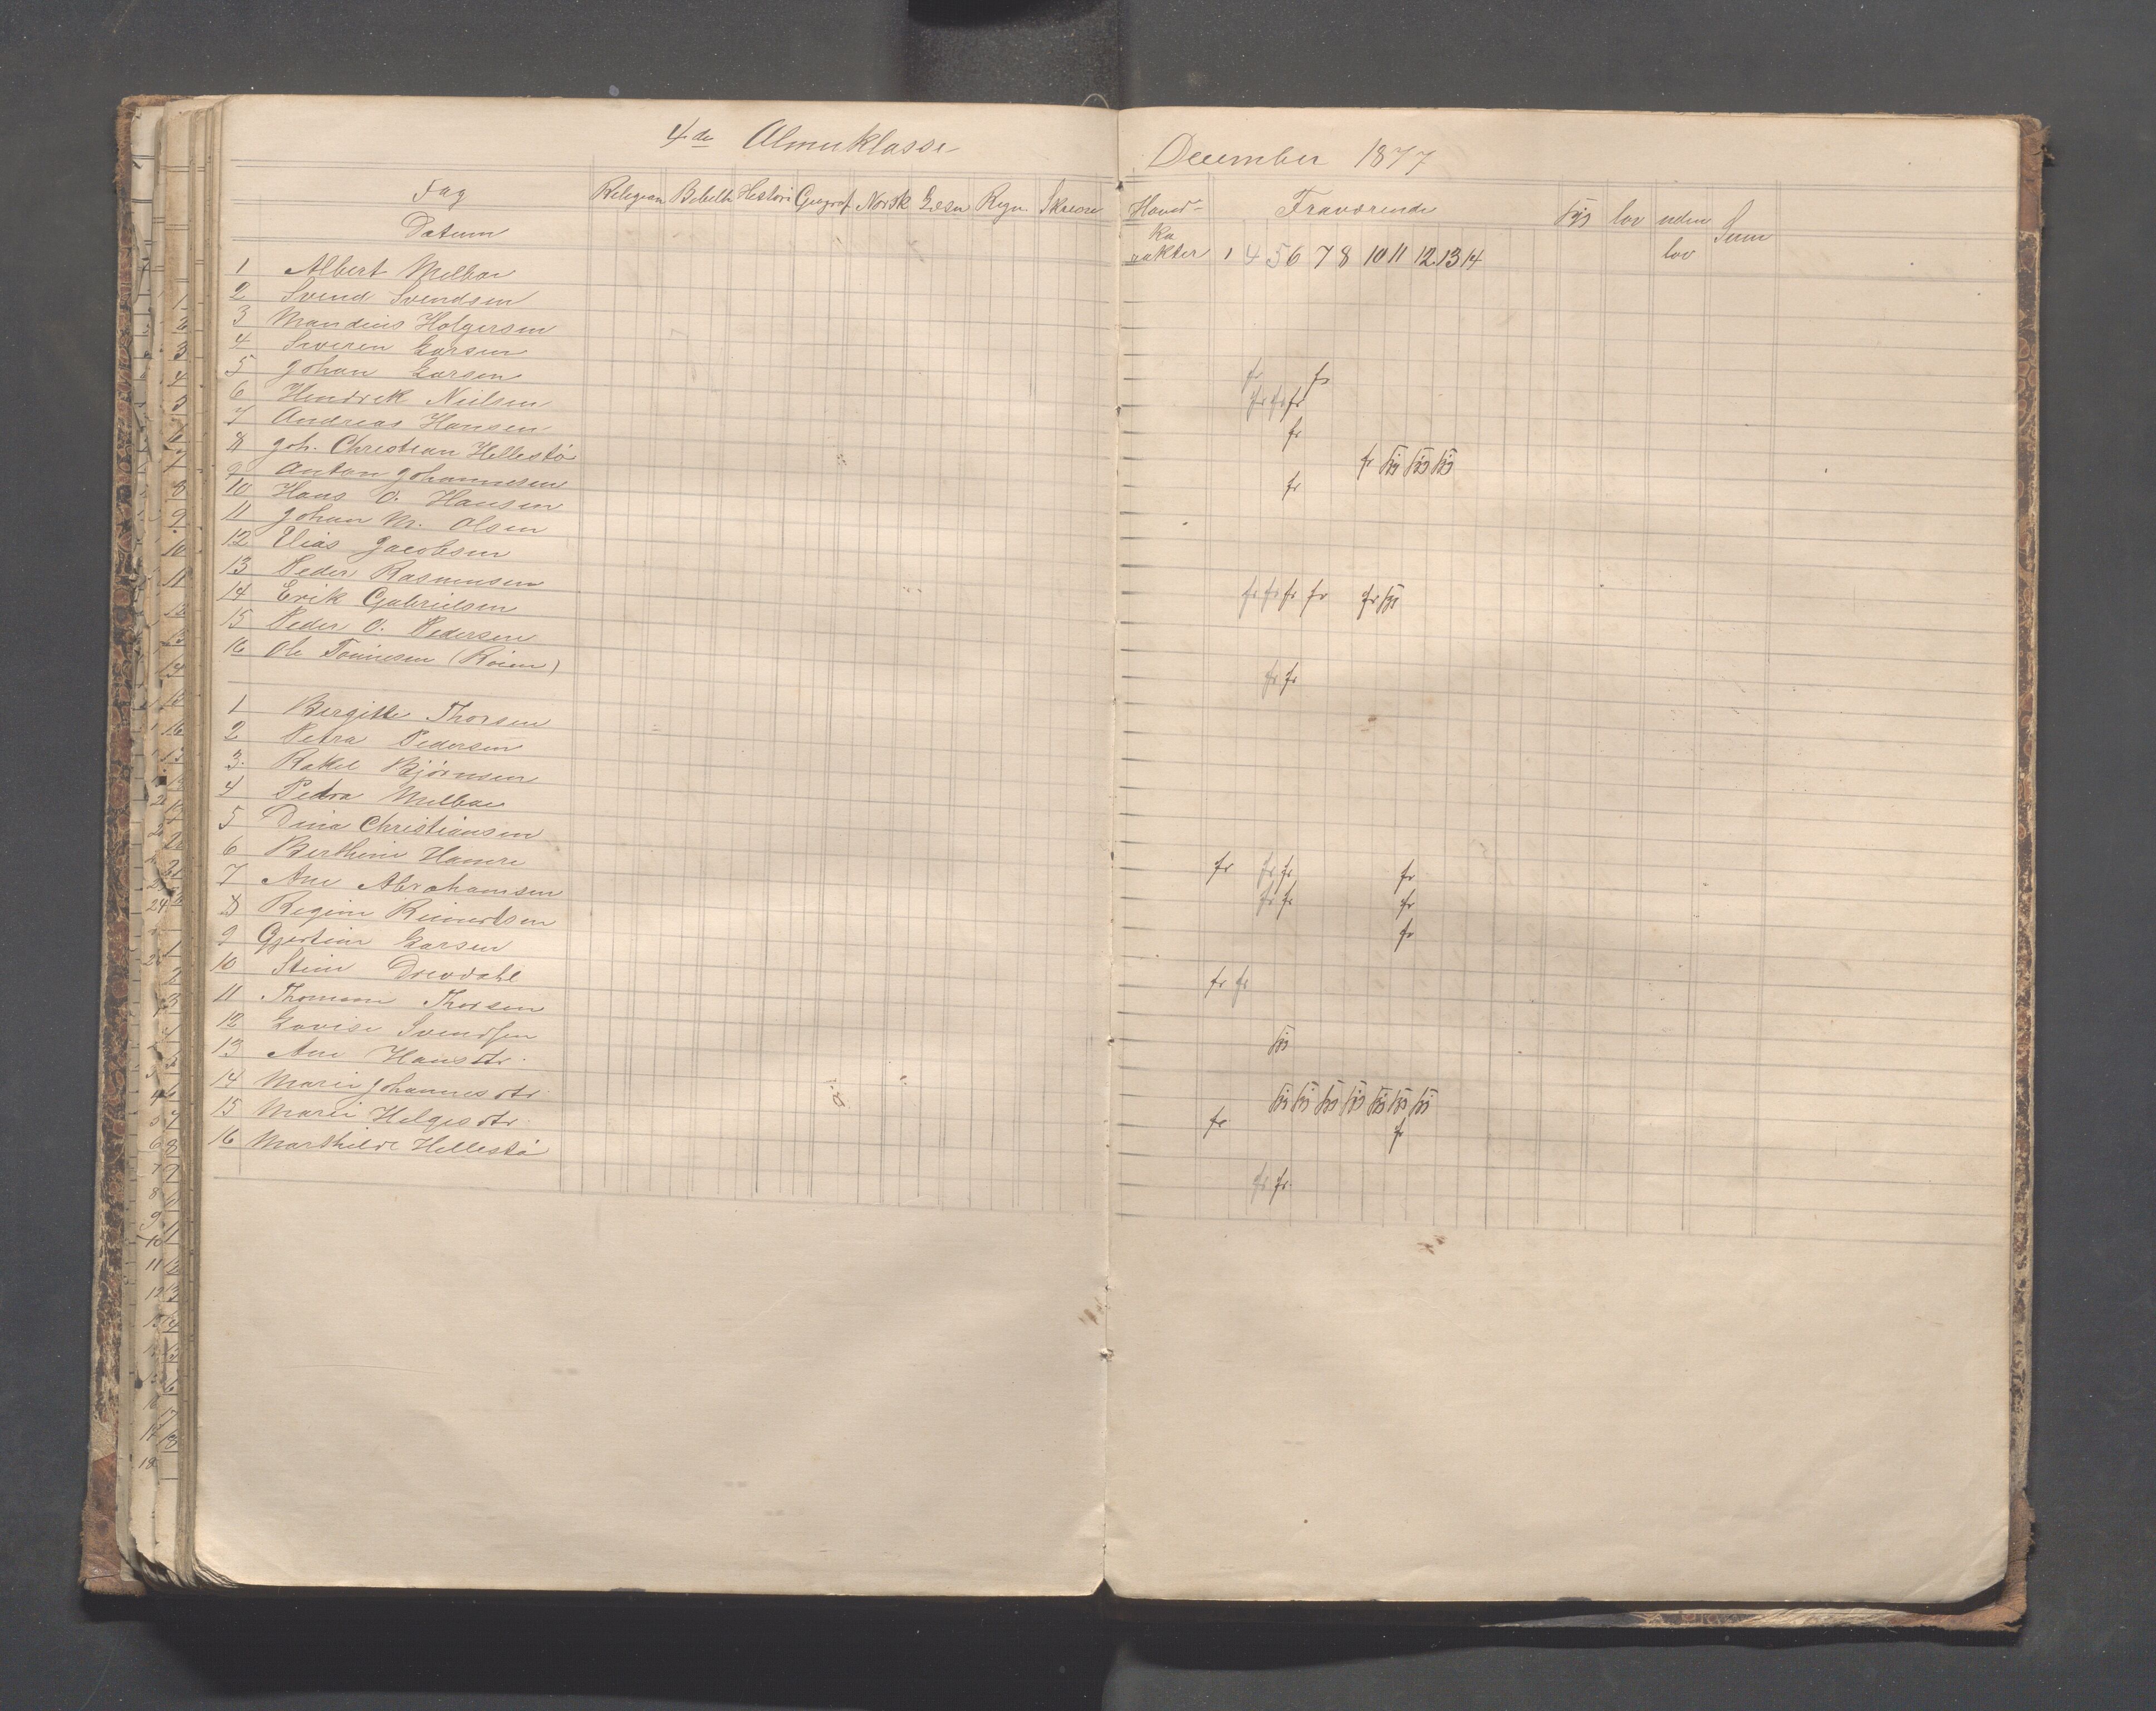 4de Almuklasse
Fag Religion Bibelh Histori Geograf Norsk Læsn Regn. Skrivn
Datum
1 Albert Melbae
2 Svend Svendsen
3 Mandius Holgersen
4 Severin Larsen
5 Johan Larsen
6 Hendrik Nielsen
7 Andreas Hansen
8 Joh. Christian Hellestø
9 Anton Johannesen
10 Hans O. Hansen
11 Johan M. Olsen
12 Elias Jacobsen
13 Peder Rasmusen
14 Erik Gabrielsen
15 Peder O. Pedersen
16 Ole Tønnesen (Roien)
1 Bergitte Thorsen
2 Petra Pedersen
3. Rakel Bjørnsen
4 Pedra Melbae
5 Dina Christiansen
6 Berthine Hamre
7 Ane Abrahamsen
8 Regine Reinertsen
9 Gjertine Larsen
10 Stine Drevdahl
11 Thomane Thorsen
12 Lovise Svendsen
13 Ane Hansdtr.
14 Marie Johannesdtr.
15 Marie Helgesdtr.
16 Marthilde Hellestø
December 1877
Hoved- Fraværende syg lov uden Sum
ka
rakter 1 4 5 6 7 8 10 11 12 13 14 lov
fr fr
fr fr fr
fr
fr syg syg syg
fr
fr fr fr fr fr syg
fr fr
fr fr fr fr
fr fr fr
fr
fr fr
syg
syg syg syg syg syg syg syg
fr fr
fr fr